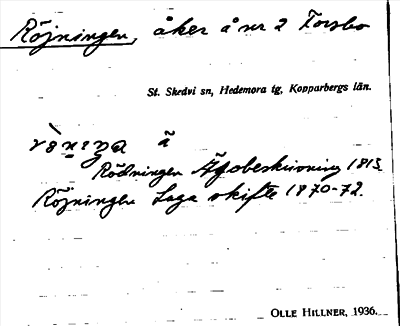 Röjningen, åker å nr 2 Forsbo
St. Skedvi sn, Hedemora tg, Kopparbergs län.
å
Rödningen Ägobeskrivning 1815
Röjningen Laga skifte 1870-72.
OLLE HILLNER, 1936.